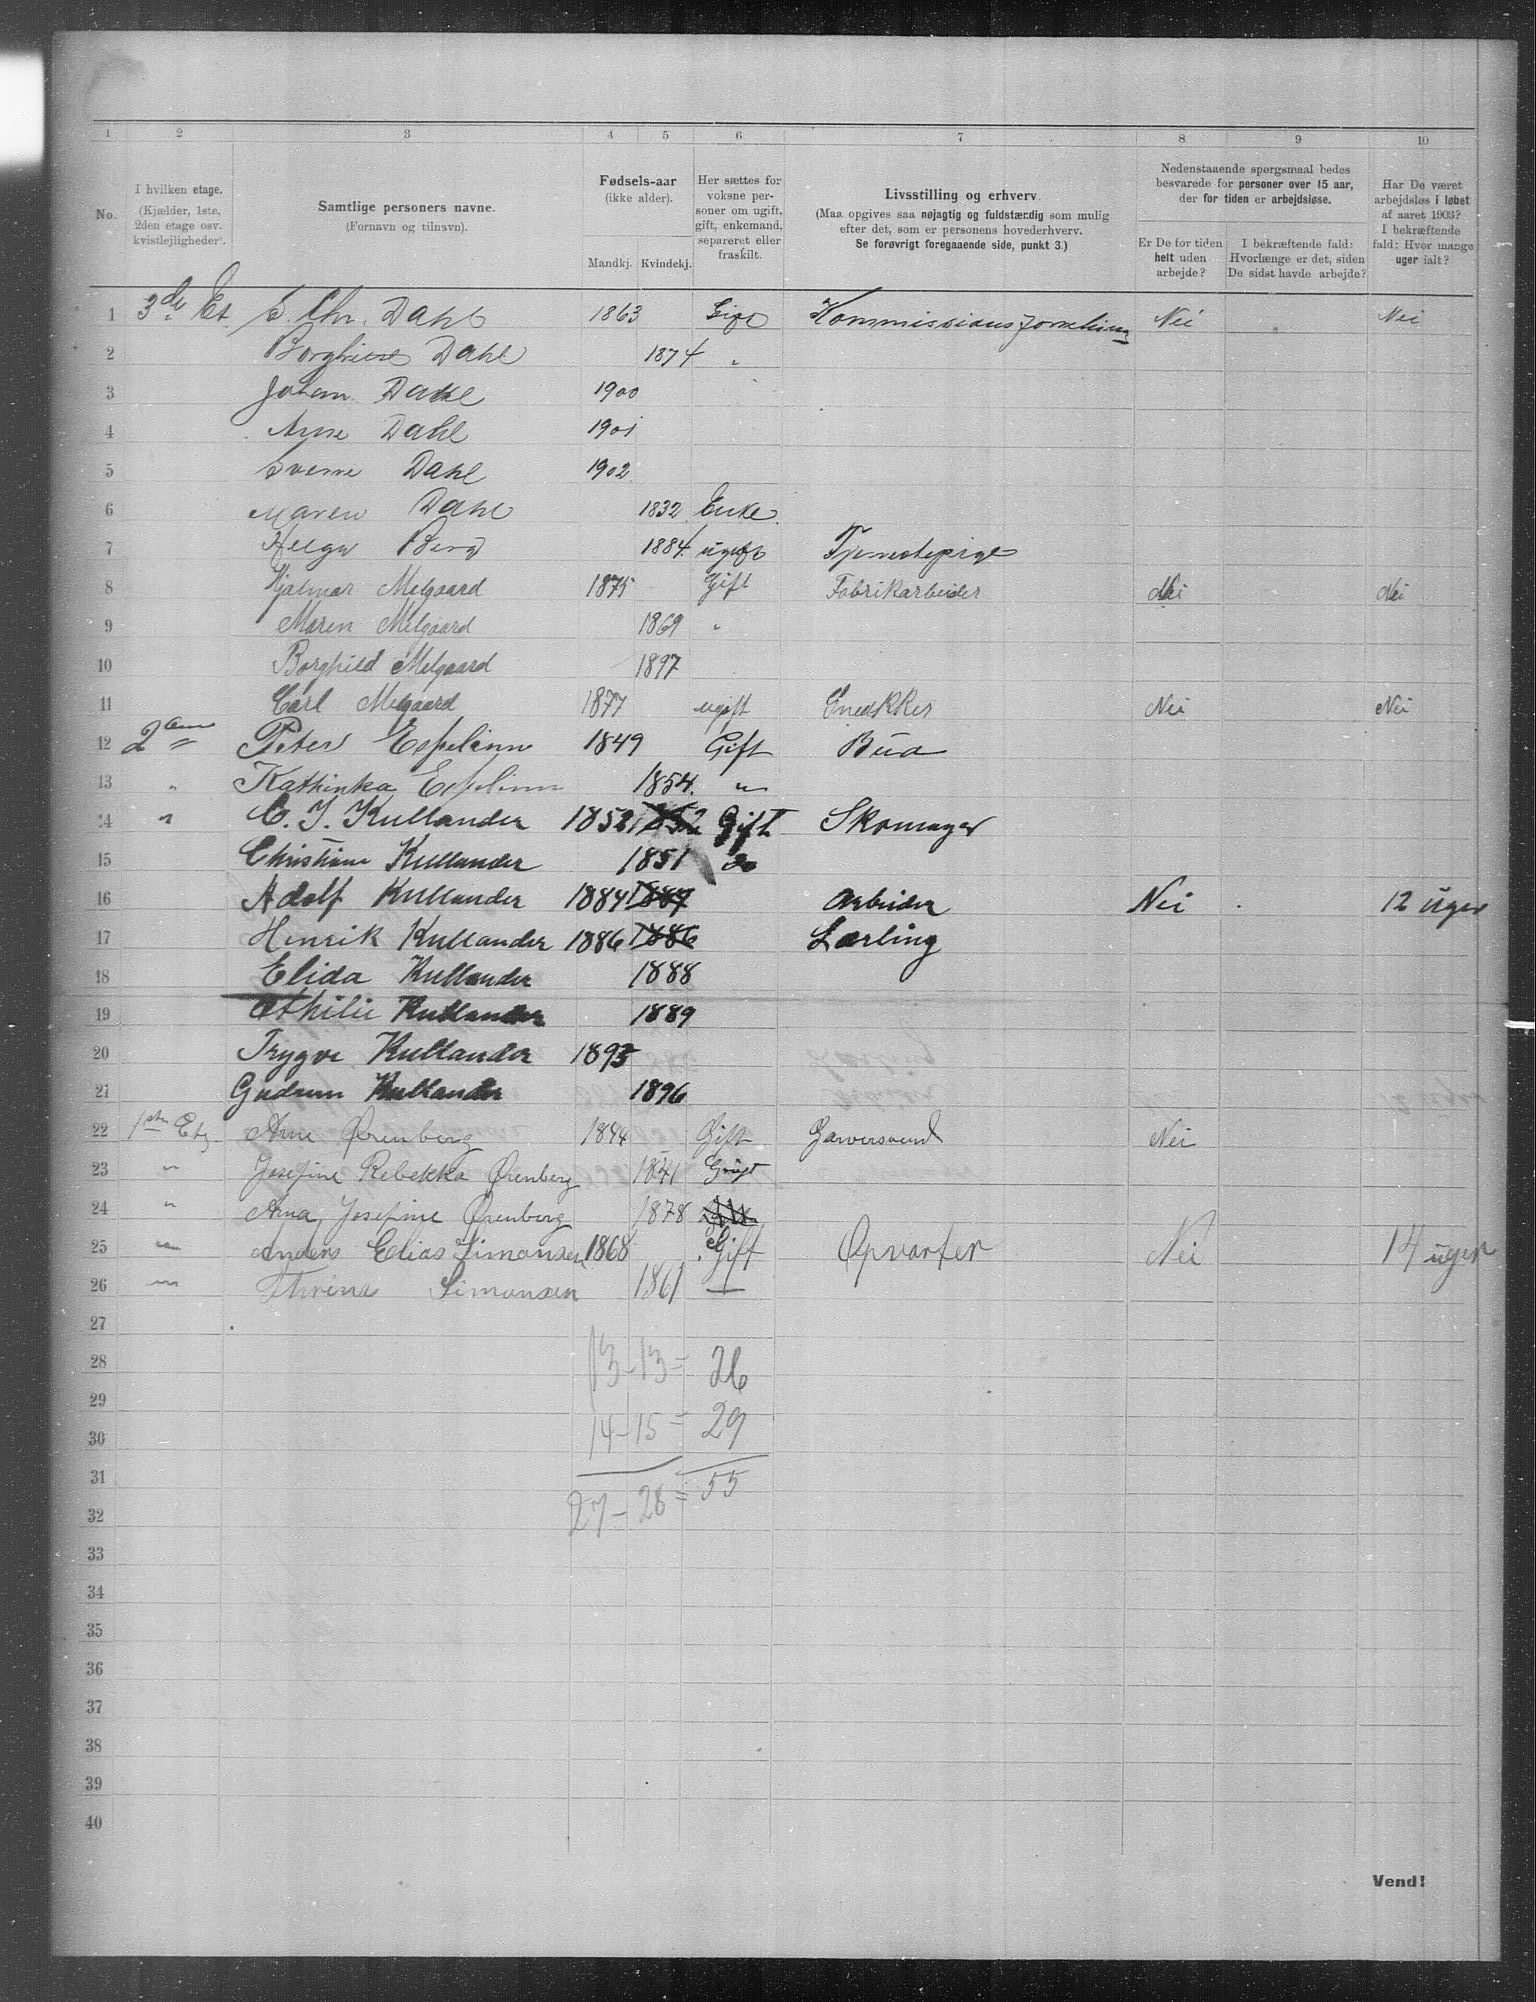 1 2 3 4 5 6 7 8 9 10
No.
I hvilken etage.
(Kjælder, 1ste,
2den etage osv.
kvistlejligheder).
Samtlige personers navne.
(Fornavn og tilnavn).
Fødsels-aar
(ikke alder).
Mandkj. Kvindekj.
Her sættes for
voksne per-
soner om ugift,
gift, enkemand,
separeret eller
fraskilt.
Livsstilling og erhverv.
(Maa opgives saa nøjagtig og fuldstændig som mulig
efter det, som er personens hovederhverv.
Se forøvrigt foregaaende side, punkt 3.)
Nedenstaaende spørgsmaal bedes
besvarede for personer over 15 aar,
der for tiden er arbejdsløse.
Er De for tiden
helt uden
arbejde?
I bekræftende fald:
Hvorlænge er det, siden
De sidst havde arbejde?
Har De været
arbejdsløs i løbet
af aaret 1903?
I bekræftende
fald: Hvor mange
uger ialt?
1 3die Et. S. Chr. Dahl 1863 Gift Kommissionsforretning Nei Nei
2 Dahl 1874 "
3 Johan Dahl 1900
4 Arne Dahl 1901
5 Sverre Dahl 1902
6 Maren Dahl 1832 Enke
7 Helga Berg 1884 ugift Tjenestepige
8 Hjalmar Melgaard 1875 Gift Fabrikarbeider Nei Nei
9 Maren Melgaard 1869 "
10 Borghild Melgaard 1897
11 Carl Melgaard 1877 ugift Snedkker Nei Nei
12 2den " Peter Espelinn 1849 Gift Bud
13 " Kathinka Espelinn 1854 "
14 " C. J. Kullander 1852 1852 Gift Skomager
15 Christiane Kullander 1851 do
16 Adolf Kullander 1884 1884 Arbeider Nei 12 uger
17 Henrik Kullander 1886 1886 Lærling
18 Elida Kullander 1888
19 Othilie Kullander 1889
20 Trygve Kullander 1893
21 Gudrun Kullander 1896
22 1ste Etg Arne Ørenberg 1844 Gift Garversvend Nei
23 " Josefine Rebekka Ørenberg 1841 Gift
24 " Anna Josefine Ørenberg 1878
25 " Anders Elias Simonsen 1868 Gift Opvarter Nei 14 uger
26 " Thrine Simonsen 1861 "
27
28 13 - 13 = 26
29
30 14 - 15 = 29
31
32 27 - 28 = 55
33
34
35
36
37
38
39
40
Vend!